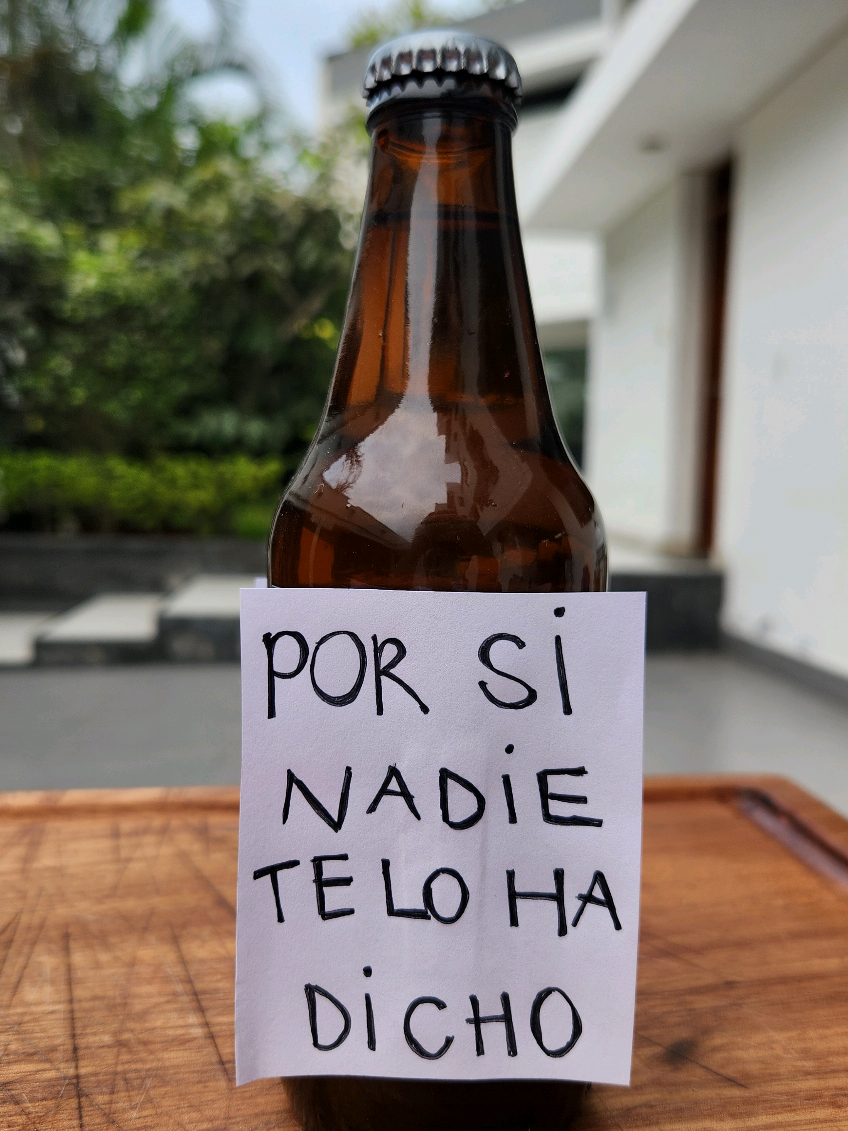 POR SI
NADIE
TE LO HA
DICHO